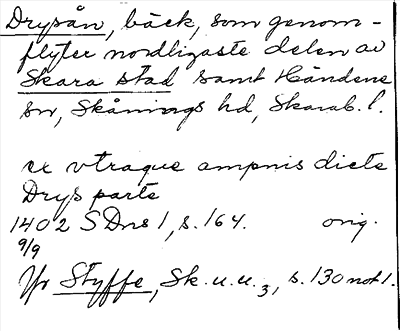 Drysån, bäck, som genom-
flyter nordligaste delen av
Skara stad samt Händene
sn, Skånings hd, Skarab. l.
ex vtraque ampnis dicte
Drys parte
1402 SDns 1, s. 164. orig.
9/9
Jfr Styffe, Sk. u. u. 3, s. 130 not 1.